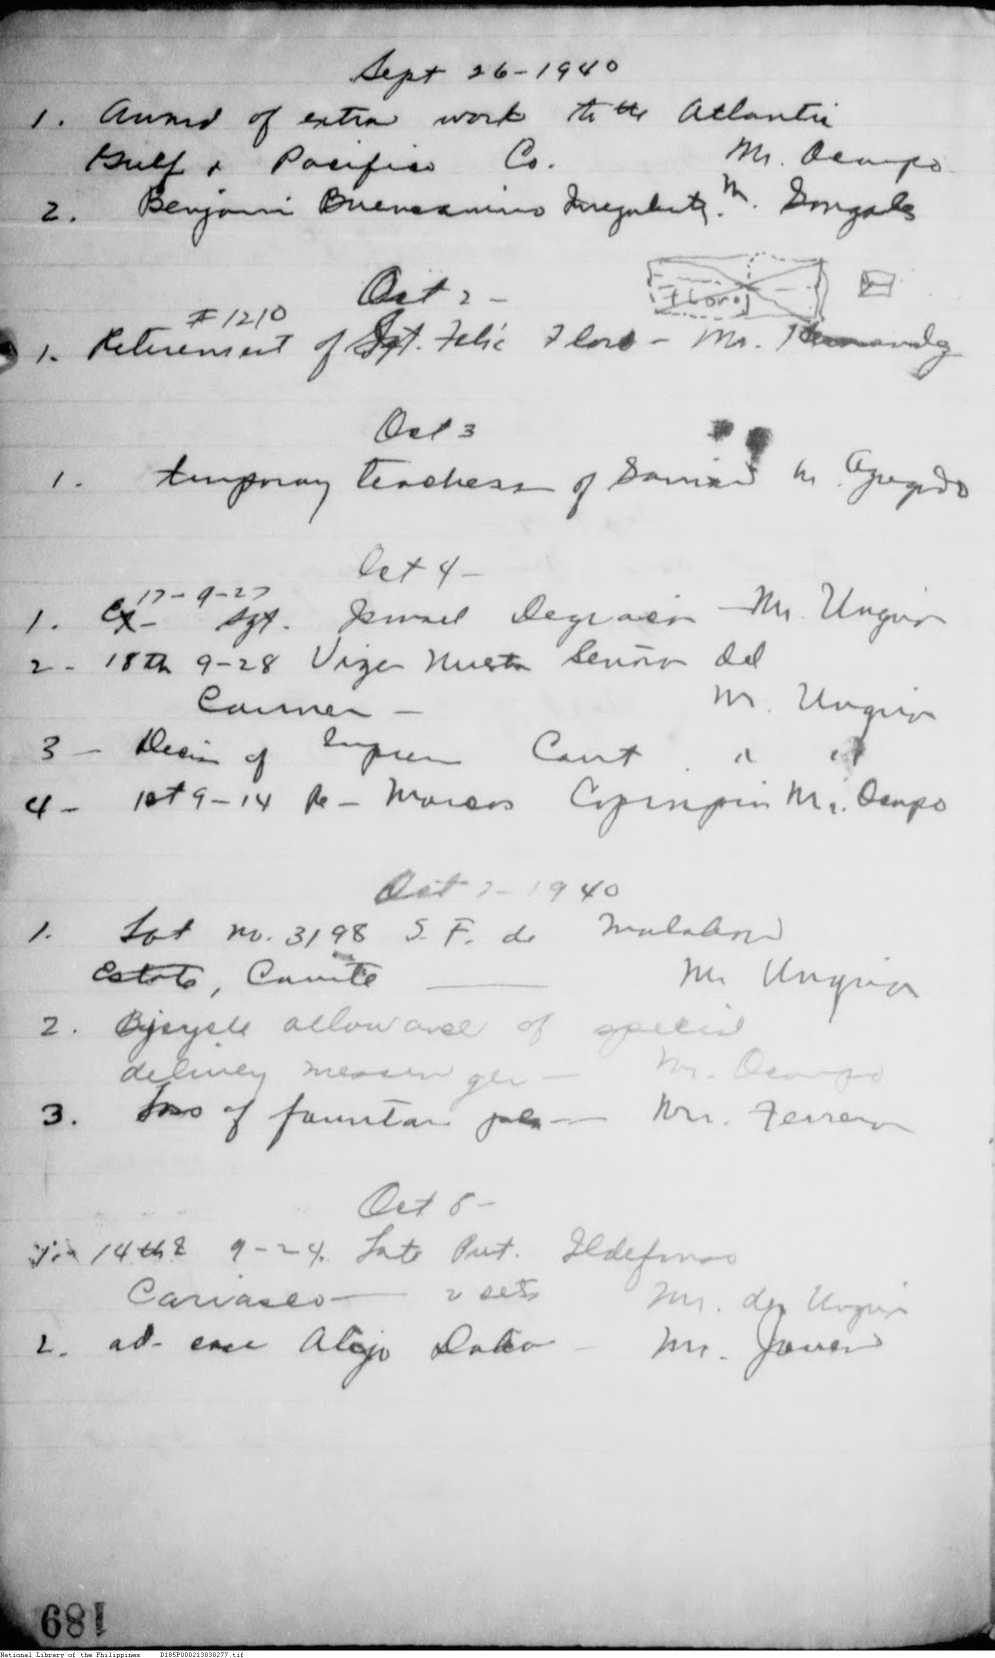 Sept 26-1940
1. Award of extra work to the Atlantic
Gulf & Pacific Co. Mr. Ocampo
2. Benjamin Buencamino Irregularity. M. Gonzales
Oct 2-
Floro
#1210
1. Retirement of Sgt. Felix Floro - Mr. Hernandez
Oct 3
1. temporary teachers of M. Agregado
Oct 4-
17-9-27
1. Ex- Sgt. Ismael - Mr. Unguia
2- 18th 9-28 Nuestra Señora del
Carmen - M. Unguia
3- of Supreme Court " "
4- 1st 9-14 Re- Marcos Mr. Ocampo
Oct 7-1940
1. Lot no. 3198 S. F. de Malabon
Estate, Cavite — Mr Unguia
2. Bicycle allowance of special
delivery messenger - Mr. Ocampo
3. Loss of fountain pen — Mr. Ferrera
Oct 8-
14th 9-24. Late Pvt. Ildefonso
Cariaseo — 2 sets Mr. de Unguia
2. ad- case Alejo - Mr. Javier
189
National Library of the Philippines D185P000213838277.tif